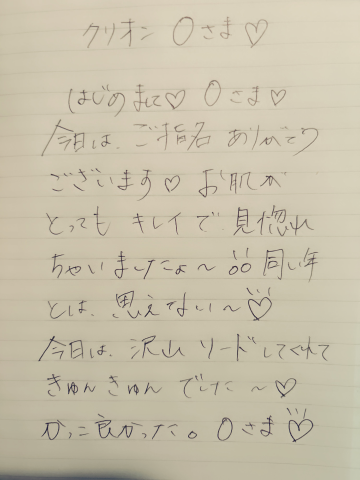 クリオン 〇さま♡
はじめまして♡ 〇さま♡
今日は、ご指名 ありがとう
ございます♡ お肌が
とっても キレイで 見惚れ
ちゃいましたよ〜 同い年
とは、思えない〜♡
今日は、沢山 リードしてくれて
きゅんきゅん でした〜♡
かっこ良かった。〇さま♡